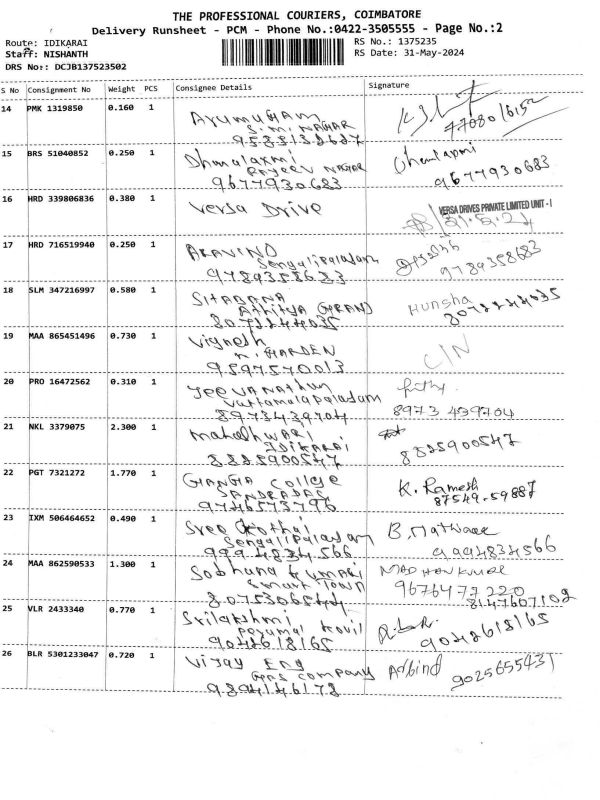 THE PROFESSIONAL COURIERS, COIMBATORE
Delivery Runsheet - PCM - Phone No.:0422-3505555 - Page No.:2
Route: IDIKARAI
RS No.: 1375235
Staff: NISHANTH
RS Date: 31-May-2024
DRS No: DCJB137523502
S No Consignment No Weight PCS Consignee Details Signature
14 PMK 1319850 0.160 1
Arumugam
S.M. NAGAR
77080 16152
15 BRS 51040852 0.250 1 Dhanalaxmi
NAGAR
9677930683 9677930683
16 HRD 339806836 0.380 1 Versa Drive
VERSA DRIVES PRIVATE LIMITED UNIT - I
31.5.24
17 HRD 716519940 0.250 1 ARAVIND
Sengalipalayam
9789358683 9789358683
18 SLM 347216997 0.580 1
Hunsha
19 MAA 865451496 0.730 1 Vignesh
GARDEN
9597570013
20 PRO 16472562 0.310 1 Jeevanathun
Vattamalapalayam
8973439704 8973 439704
21 NKL 3379075 2.300 1 Maheshwari
IDIKARAI
8825900547 8825900547
22 PGT 7321272 1.770 1 GANGA College
K. Ramesh
9746573796 87549.59887
23 IXM 506464652 0.490 1 Sree
Sengalipalayam
9994834566 9994834566
24 MAA 862590533 1.300 1 Sobhana Kumari
Smart Town
9676477220
8075306544 8147607102
25 VLR 2433340 0.770 1 Srilakshmi
Perumal Kovil
9042618165 9042618165
26 BLR 5301233047 0.720 1 Vijay Eng
Gas company
9894146178 9025655431